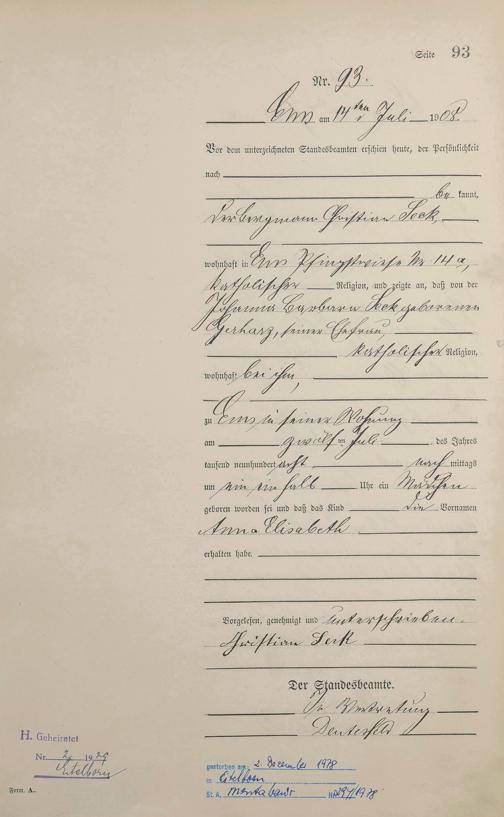 Seite 93
Nr. 93.
Ems am 14ten Juli 1908.
Vor dem unterzeichneten Standesbeamten erschien heute, der Persönlichkeit
nach
be kannt,
der Bergmann Christian Seck,
wohnhaft in Ems Pfingstwiese Nr. 14a,
katholischer Religion, und zeigte an, daß von der
Johanna Barbara Seck geborenen
Gerharz, seiner Ehefrau,
katholischer Religion,
wohnhaft bei ihm,
zu Ems in seiner Wohnung
am zwölf ten Juli des Jahres
tausend neunhundert acht nach mittags
um ein einhalb Uhr ein Mädchen
geboren worden sei und daß das Kind die Vornamen
Anna Elisabeth
erhalten habe.
Vorgelesen, genehmigt und unterschrieben.
Christian Seck
Der Standesbeamte.
In Vertretung
H. Geheiratet
Nr. 2 1929
Eitelborn
gestorben am: 2. Dezember 1978
in Eitelborn
St. A. Montabaur Nr. 294/1978
Form. A.